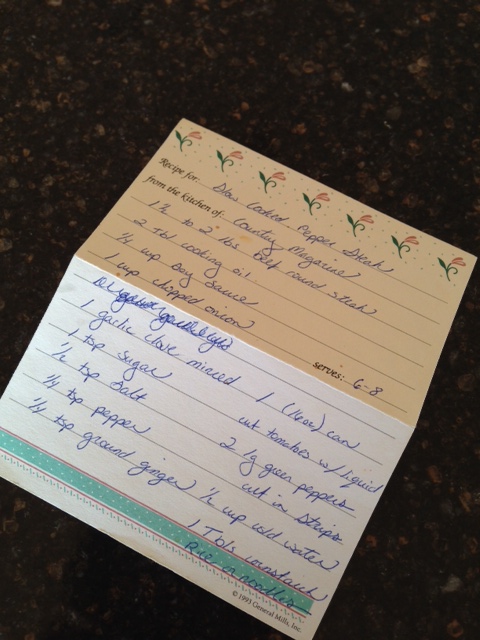 Recipe for: Slow Cooked Pepper Steak
from the Kitchen of: Country Magazine
1 1/2 to 2 lbs beef round steak
2 Tbl cooking oil
1/4 cup Soy Sauce
1 cup chopped onion
serves: 6-8
1 garlic clove minced
1 tsp sugar
1/2 tsp salt
1/4 tsp pepper
1/4 tsp ground ginger
1 (16oz) can
cut tomatoes w/liquid
2 lg green peppers
cut in strips
1/2 cup cold water
1 Tbls cornstarch
Rice or noodles
© 1993 General Mills, Inc.